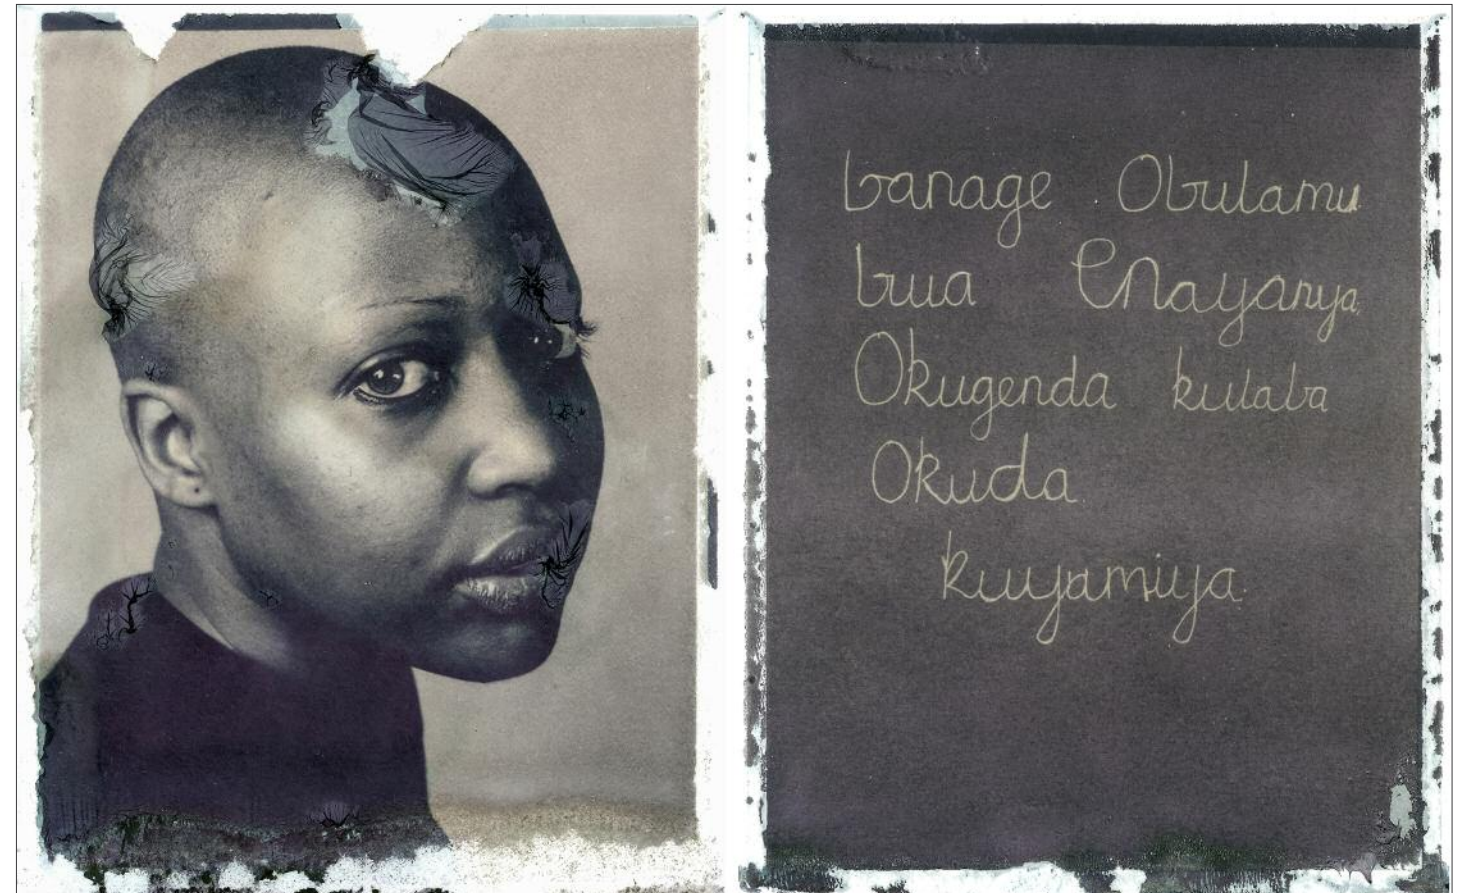 banage Obulamu
bwa Enayanya
Okugenda kulaba
Okuda